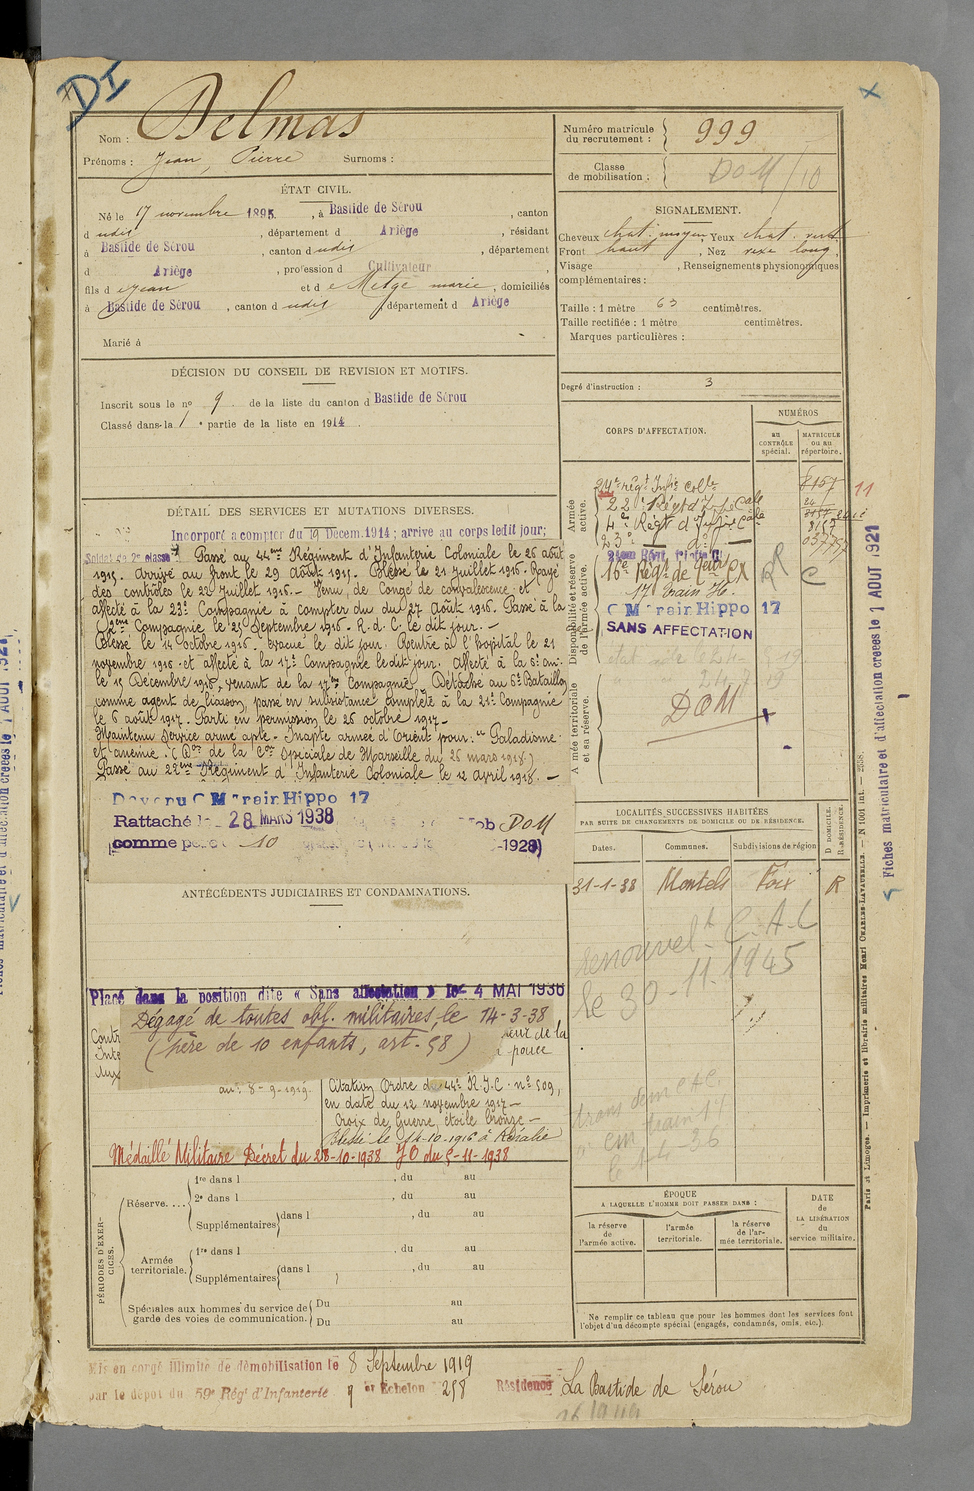 DI
Nom : Delmas
Prénoms : Jean, Pierre Surnoms :
ÉTAT CIVIL.
Né le 17 novembre 1895, à Bastide de Sérou, canton
d udit, département d Ariège, résidant
à Bastide de Sérou, canton d udit, département
d Ariège, profession d Cultivateur,
fils d e Jean et d e Metge marie, domiciliés
à Bastide de Sérou, canton d udit, département d Ariège
Marié à
DÉCISION DU CONSEIL DE REVISION ET MOTIFS.
Inscrit sous le n° 9 de la liste du canton d Bastide de Sérou
Classé dans la 1e partie de la liste en 1914.
DÉTAIL DES SERVICES ET MUTATIONS DIVERSES.
Incorporé a compter du 19 Décem. 1914; arrivé au corps ledit jour;
Soldat de 2e classe Passé au 44ème Régiment d'Infanterie Coloniale le 26 août
1915. Arrivé au front le 29 Août 1915. Blessé le 21 Juillet 1916. Rayé
des contrôles le 22 Juillet 1916.- Venu de Congé de convalescence et
affecté à la 23e Compagnie à compter du du 27 Août 1916. Passé à la
2ème Compagnie le 25 Septembre 1916. R.d.C. le dit jour.-
Blessé le 14 octobre 1916. Evacué le dit jour. Rentré à l'hôpital le 21
novembre 1916 et affecté à la 17e Compagnie le dit jour. Affecté à la 6e
le 15 Décembre 1916, venant de la 17ème Compagnie. Détaché au 6e Bataillon
comme agent de liaison, passé en subsistance complète à la 21e Compagnie
le 6 août 1917. Parti en permission le 26 octobre 1917.-
Maintenu Service armé apte - Inapte armée d'Orient pour: "Paludisme
et anémie. (Don de la Con Spéciale de Marseille du 26 mars 1918)
Passé au 22ème Régiment d'Infanterie Coloniale le 12 avril 1918. -
Hippo 17
Rattaché 28 MARS 1938 Mob DOM
comme père de 10 -1928)
ANTÉCÉDENTS JUDICIAIRES ET CONDAMNATIONS.
Placé dans la position dite « Sans affectation » le 4 MAI 1936
Dégagé de toutes obl. militaires, le 14-3-38
(père de 10 enfants, art. 58)
au 8-9-1919.
Citation Ordre du 44e R.I.C. n° 509,
en date du 12 novembre 1917 -
Croix de Guerre, étoile bronze -
Blessé le 14-10-1916 à
Médaillé Militaire Décret du 28-10-1938 JO du 5-11-1938
PÉRIODES D'EXERCICES.
Réserve....
1re dans l , du au
2e dans l , du au
Supplémentaires dans l , du au
Armée territoriale.
1re dans l , du au
Supplémentaires dans l , du au
Spéciales aux hommes du service de Du au
garde des voies de communication. Du au
Mis en congé illimité de démobilisation le 8 Septembre 1919
par le dépôt du 59e Rég' d'Infanterie 9 er Echelon 258 Résidence La Bastide de Sérou
Numéro matricule
du recrutement : 999
Classe
de mobilisation : DOM/10
SIGNALEMENT.
Cheveux chat. moyen, Yeux chat. verts
Front haut, Nez rexe long,
Visage , Renseignements physionomiques
complémentaires :
Taille : 1 mètre 63 centimètres.
Taille rectifiée : 1 mètre centimètres.
Marques particulières :
Degré d'instruction : 3
CORPS D'AFFECTATION.
NUMÉROS
au
CONTRÔLE
spécial.
MATRICULE
ou au
répertoire.
Armée active.
24e régt Infie colle 8157
22e Régt d'Infie Cale
4e Régt d'Infie Cale
23e do
Disponibilité et réserve de l'armée active.
16e Régt de
17 train H.
C M Train Hippo 17
SANS AFFECTATION
Armée territoriale et sa réserve.
DOM
11
LOCALITÉS SUCCESSIVES HABITÉES
PAR SUITE DE CHANGEMENTS DE DOMICILE OU DE RÉSIDENCE.
Dates. Communes. Subdivisions de région D. DOMICILE. R. RÉSIDENCE.
31-1-38 Montels Foix R
renouvelt C.A.C
le 30-11-1945
train 17
ÉPOQUE
A LAQUELLE L'HOMME DOIT PASSER DANS :
la réserve
de
l'armée active.
l'armée
territoriale.
la réserve
de l'ar-
mée territoriale.
DATE
de
LA LIBÉRATION
du
service militaire.
Ne remplir ce tableau que pour les hommes dont les services font
l'objet d'un décompte spécial (engagés, condamnés, omis, etc.).
Paris et Limoges. — Imprimerie et librairie militaires Henri CHARLES-LAVAUZELLE. — N° 1001 int. — 2558.
Fiches matriculaire et d'affectation créées le 1 AOUT 1921